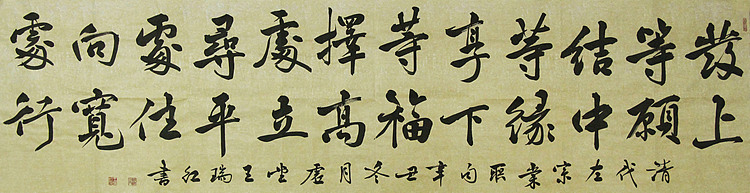 發上
等願
結中
等緣
享下
等福
擇高
處立
尋平
處住
向寬
處行
清代左宗棠聯句辛丑冬月王瑞红書